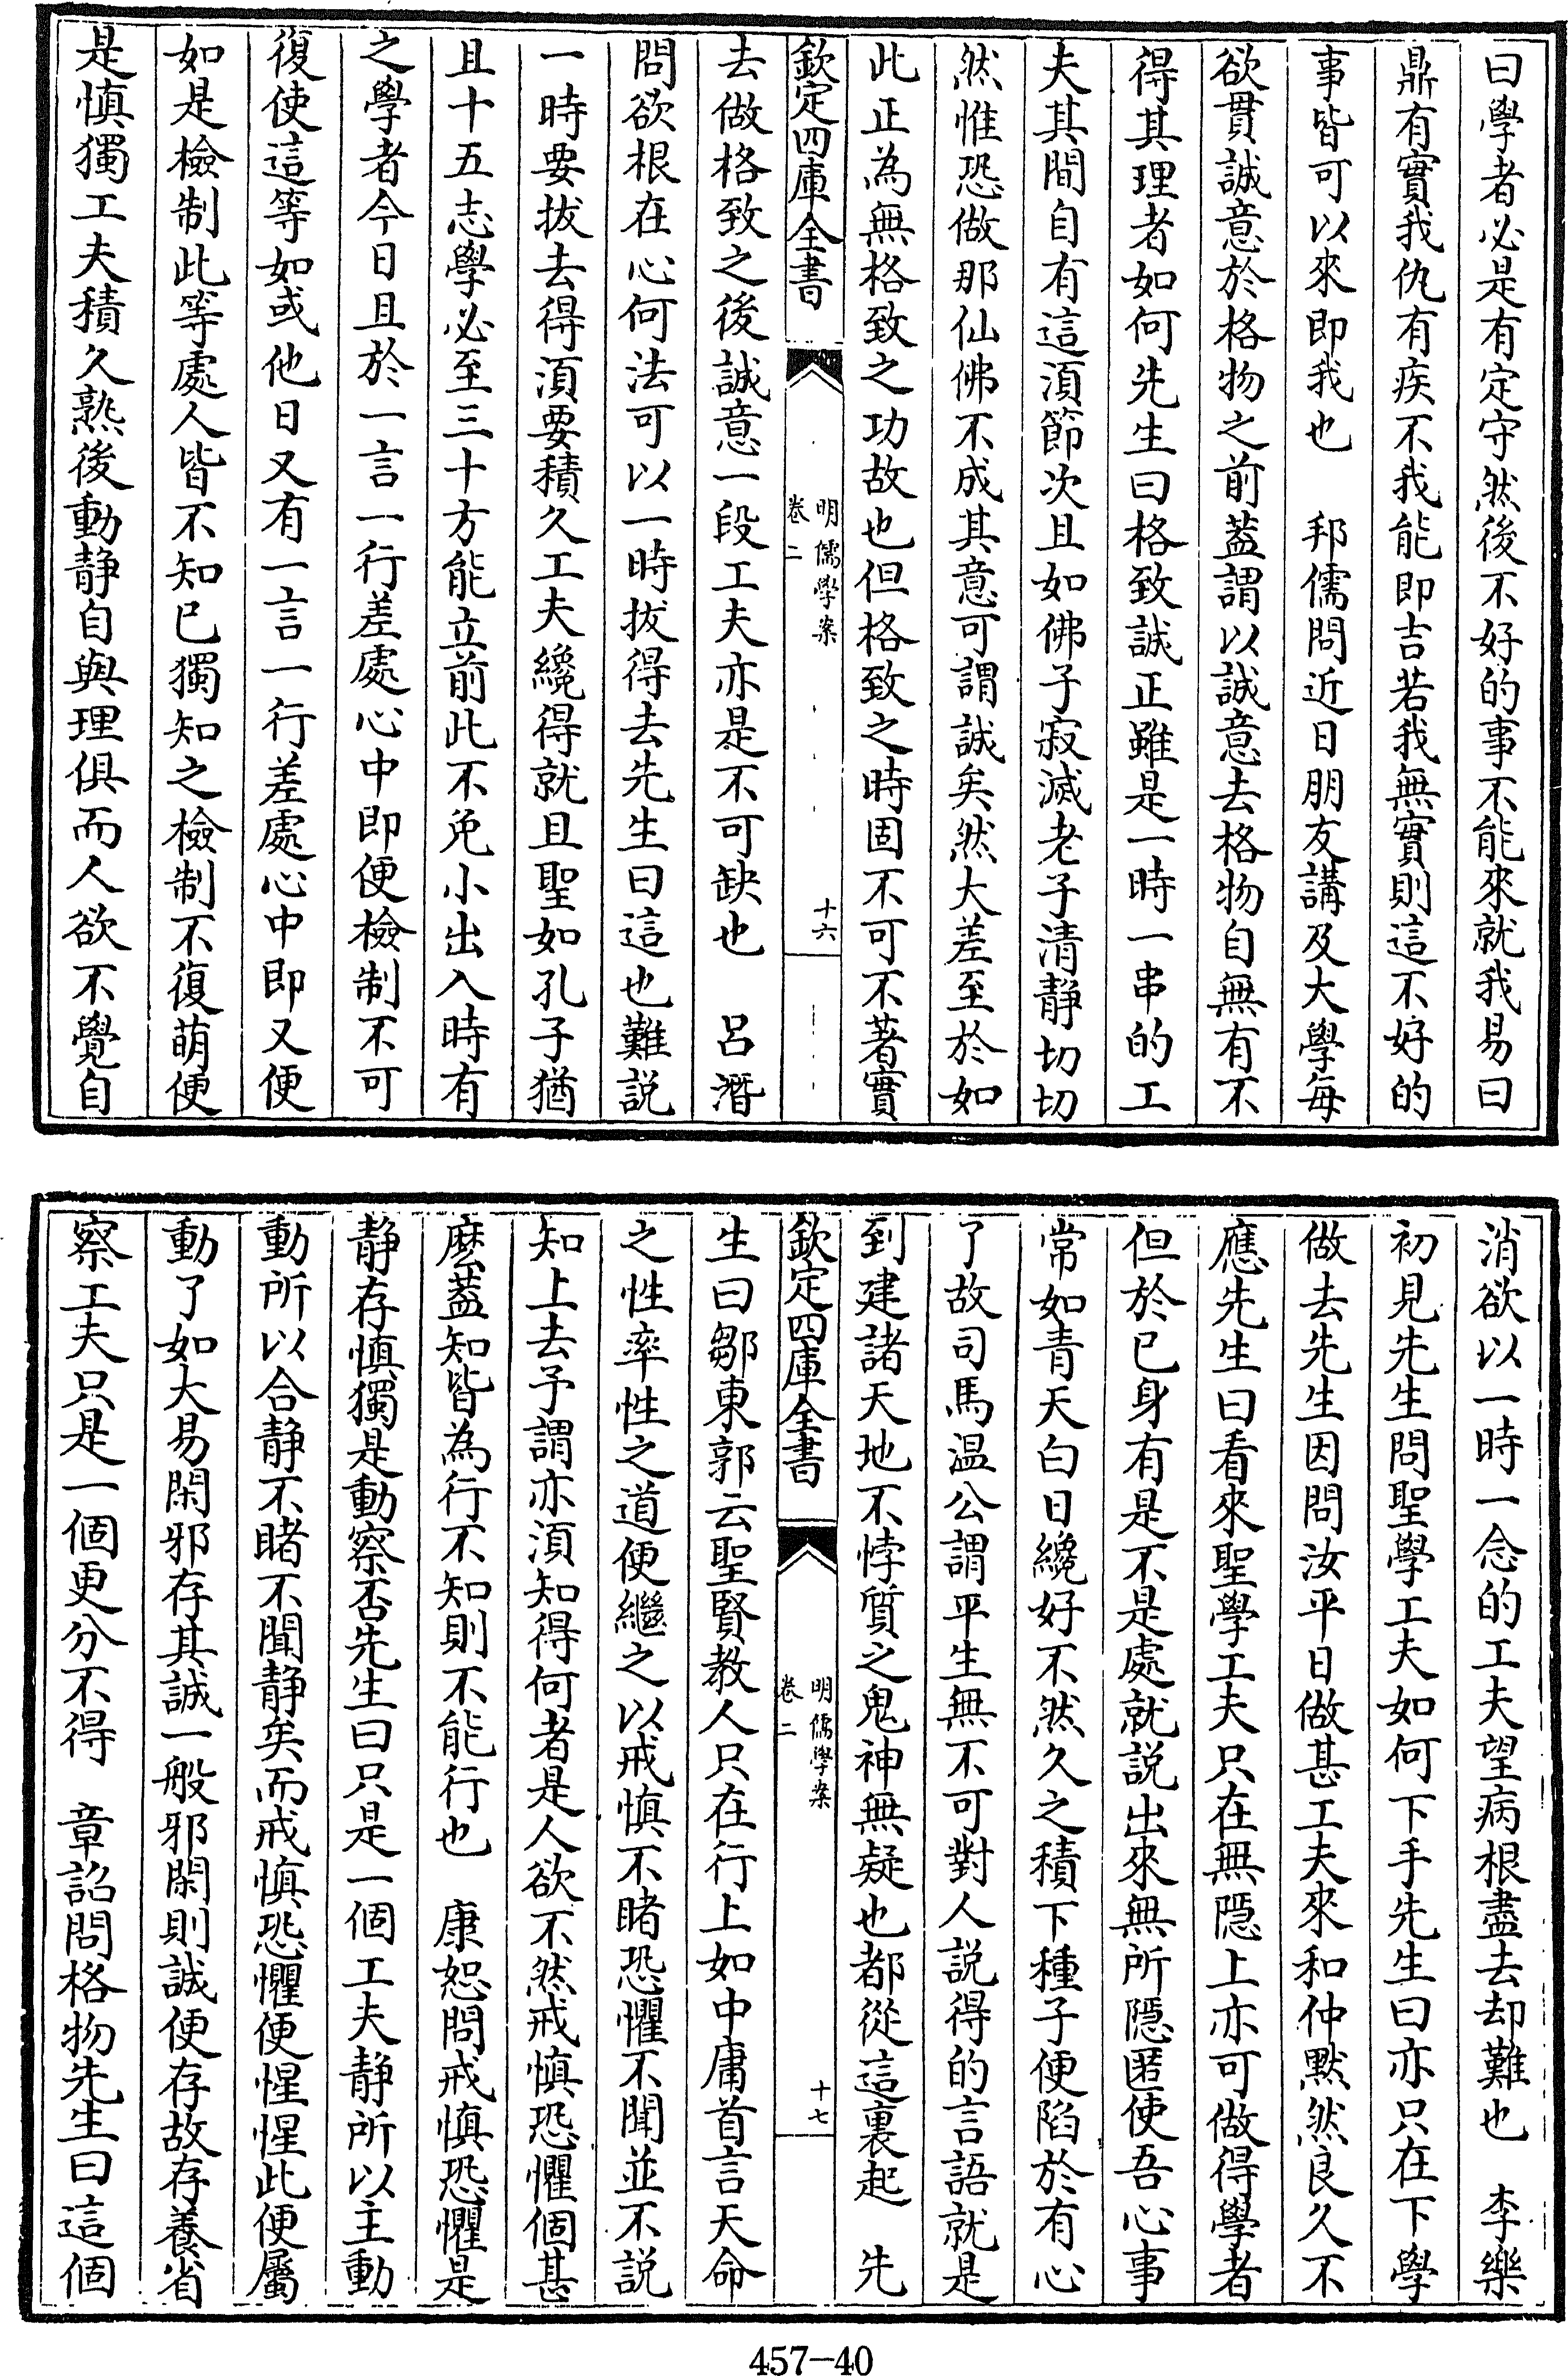 曰學者必是有定守然後不好的事不能來就我易曰
鼎有實我仇有疾不我能即吉若我無實則這不好的
事皆可以來即我也　邦儒問近日朋友講及大學每
欲貫誠意於格物之前蓋謂以誠意去格物自無有不
得其理者如何先生曰格致誠正雖是一時一串的工
夫其間自有這湏節次且如佛子寂滅老子清靜切切
然惟恐做那仙佛不成其意可謂誠矣然大差至於如
此正為無格致之功故也但格致之時固不可不著實
欽定四庫全書
明儒學案
卷二
十六
去做格致之後誠意一段工夫亦是不可缺也　呂潛
問欲根在心何法可以一時拔得去先生曰這也難説
一時要拔去得湏要積久工夫纔得就且聖如孔子猶
且十五志學必至三十方能立前此不免小出入時有
之學者今日且於一言一行差處心中即便檢制不可
復使這等如或他日又有一言一行差處心中即又便
如是檢制此等處人皆不知已獨知之檢制不復萌便
是慎獨工夫積久熟後動靜自與理俱而人欲不覺自
消欲以一時一念的工夫望病根盡去却難也　李樂
初見先生問聖學工夫如何下手先生曰亦只在下學
做去先生因問汝平日做甚工夫來和仲默然良久不
應先生曰看來聖學工夫只在無隱上亦可做得學者
但於已身有是不是處就説出來無所隱匿使吾心事
常如青天白日纔好不然久之積下種子便陷於有心
了故司馬温公謂平生無不可對人説得的言語就是
到建諸天地不悖質之鬼神無疑也都從這裏起　先
欽定四庫全書
明儒學案
卷二
十七
生曰鄒東郭云聖賢教人只在行上如中庸首言天命
之性率性之道便繼之以戒慎不睹恐懼不聞並不説
知上去予謂亦湏知得何者是人欲不然戒慎恐懼個甚
麽蓋知皆為行不知則不能行也　康恕問戒慎恐懼是
靜存慎獨是動察否先生曰只是一個工夫靜所以主動
動所以合靜不睹不聞靜矣而戒慎恐懼便惺惺此便屬
動了如大易閑邪存其誠一般邪閑則誠便存故存養省
察工夫只是一個更分不得　章詔問格物先生曰這個
457-40